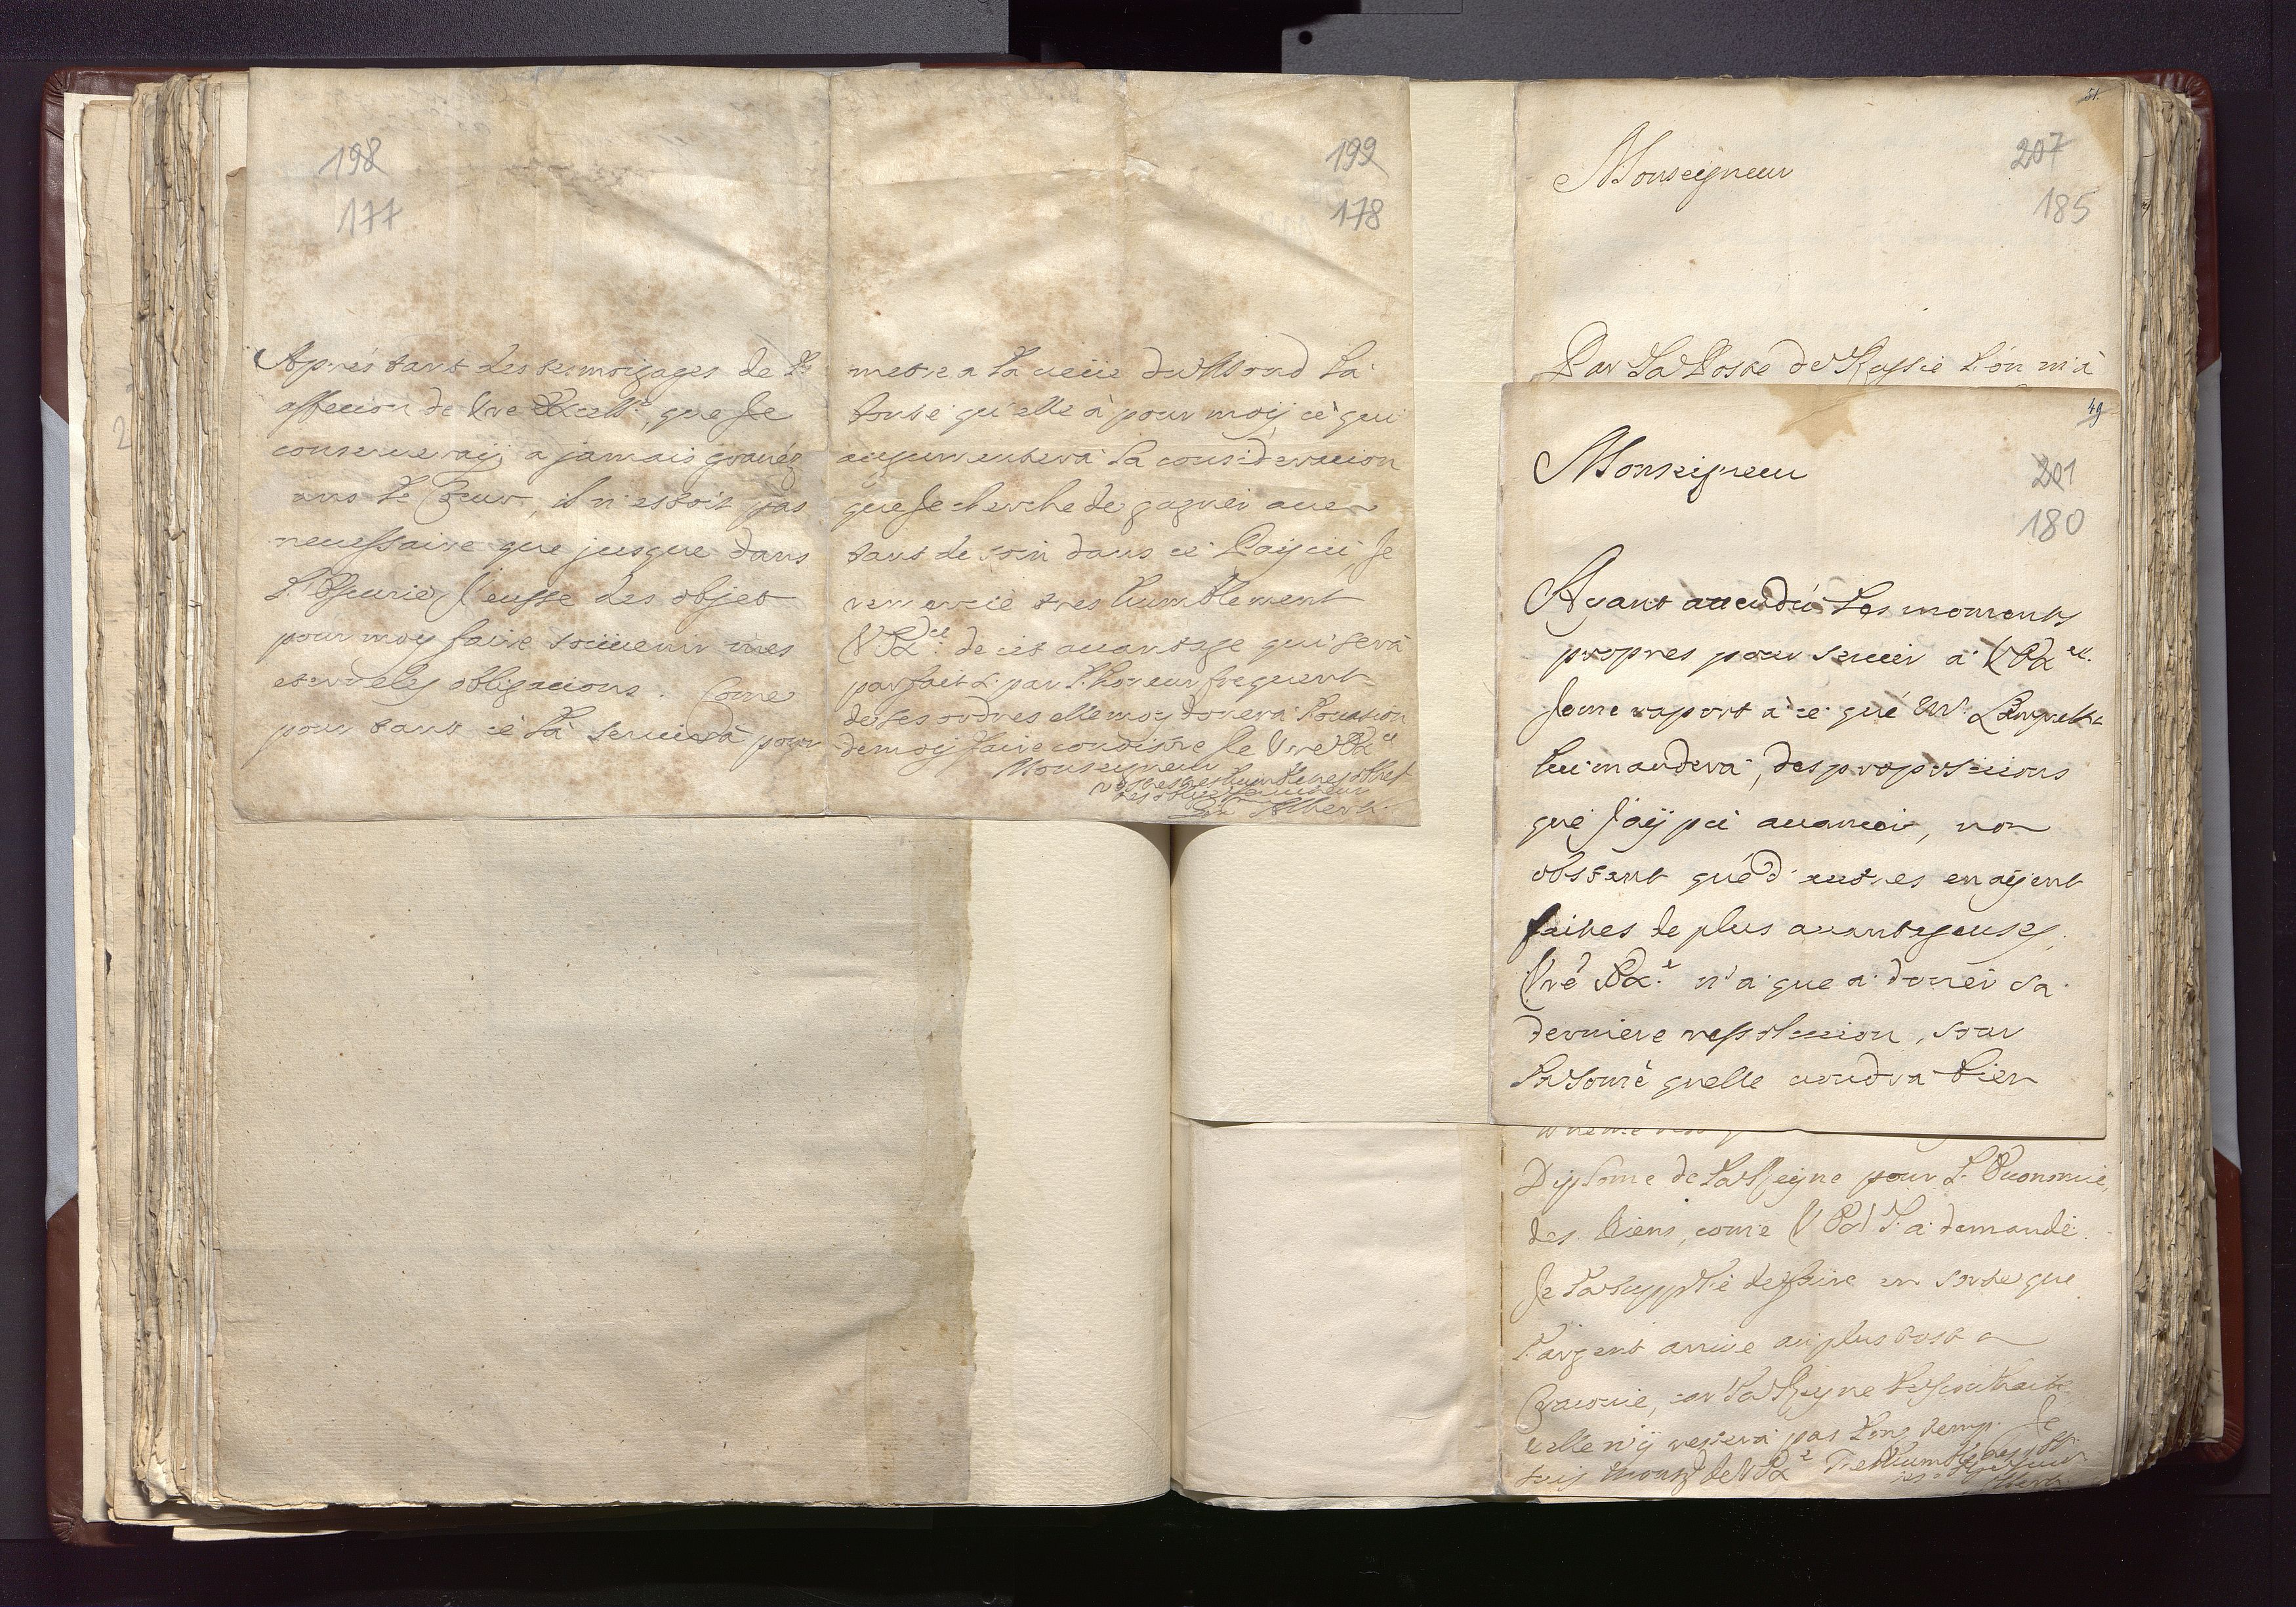 198
177
Aprés tant des tesmoigages de l'
affecion de Vre Excell:, que Je
conserveraÿ a jamais gravéz
ans le Coeur, il n'estoit pas
necessaire que jusque dans
l'Escurie J'eusse des objet
pour moy faire souuenir mes
eternelles obligacions. Come
pour tant cè là seruirà pour
199
178
metre a la ueüe du Mond la
bonté qu'elle à pour moÿ, cè qui
augumenterà la consideracion
que Je cherche de gagner auec
tant de soin dans cè Païs cÿ, Je
remercie tres humblement
V Ex.ce de cet auantage qui serà
parfait si par l'honeur frequent
de ses ordres elle moy donerà l'ocasion
de moÿ faire conoistre Je Vre Ex ce
Monseigneur
tres humble tres obbet
tres obligé seruiteur
Albert
51.
Monseigneur
207
185
Par la Poste de Russie l'on m'à
49
Monseigneur
201
180
Ayant attendu les moments
propres pour seruir a V Ex ce.
Jeme raport à cè qué Mr.
lui manderà, des proposicions
qué J'aÿ pû auancer, non
obstant qué d'autres en aÿent
faites de plus auantageuses,
Vre Ex.e n'a que a doner sa
derniere ressolucion, sour
la some quelle uoudra bien
Diplome de la Reyne pour l'Economie,
des Biens, come V Ex l'a demandé.
Je la supplie de faire en sorte que
l'argent arriue au plus tost a
Cracouie, car la Reyne
e elle n'ÿ restera pas long temp. Je
suis Monsr de V Ex e Tres humble tres ob.
Albert